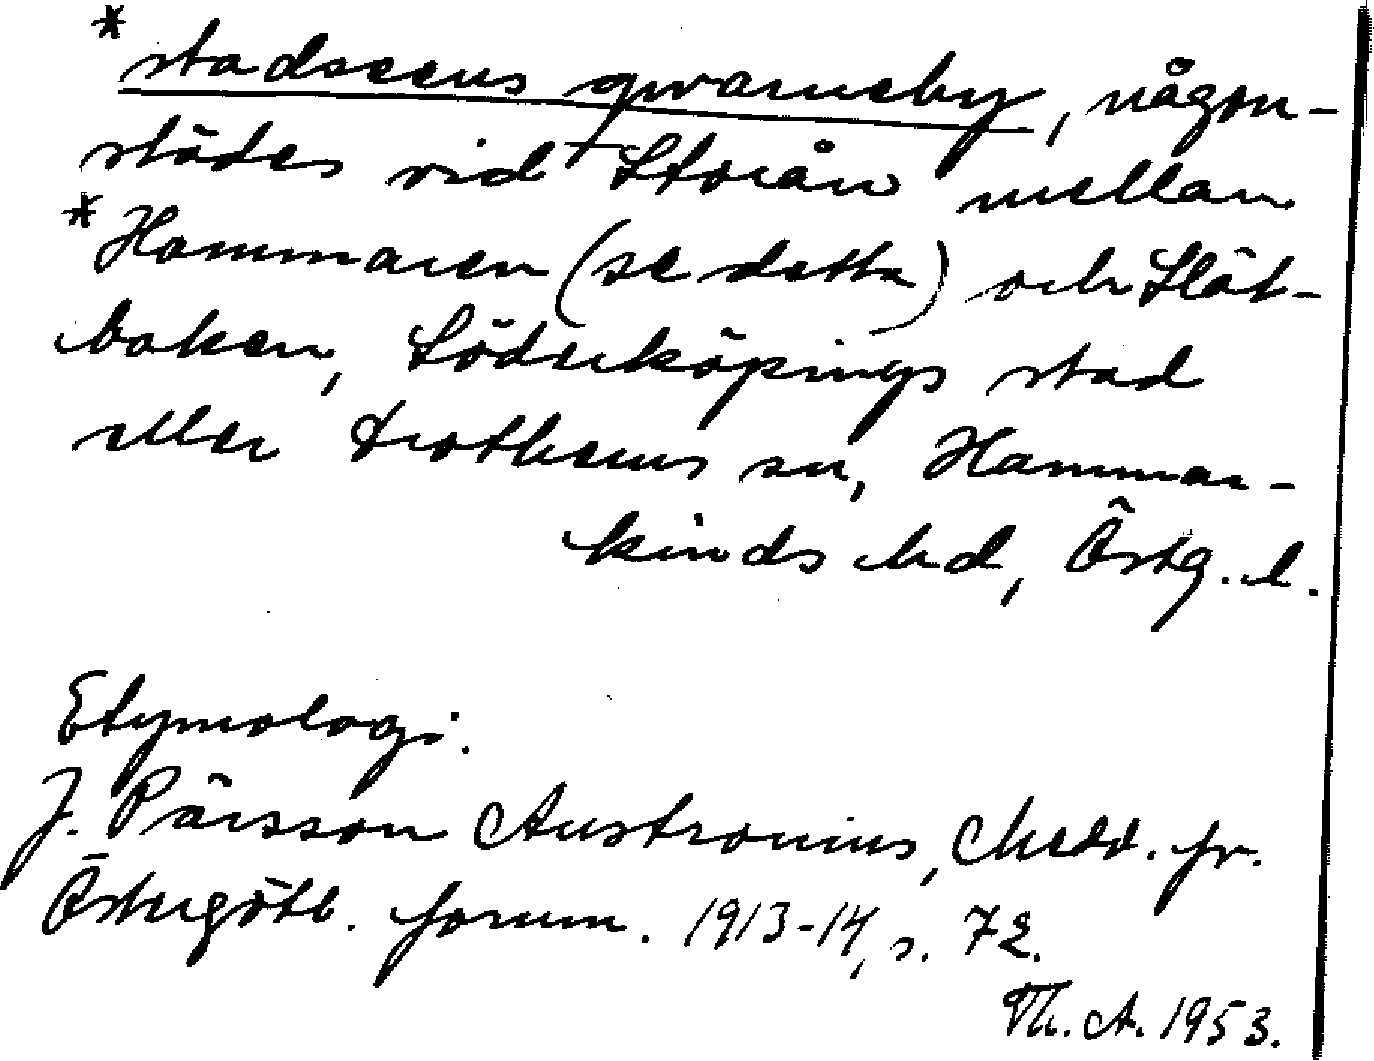 *stadsceus qwarneby, någon-
städes vid Storån mellan
*Hammaren (se detta) och Slät-
baken, Söderköpings stad
eller Drothems sn, Hammar-
kinds hd, Östg. l.
Etymologi.
J. Pärsson Austronius, Medd. fr.
Östergötl. fornm. 1913-14, s. 72.
Th. A. 1953.